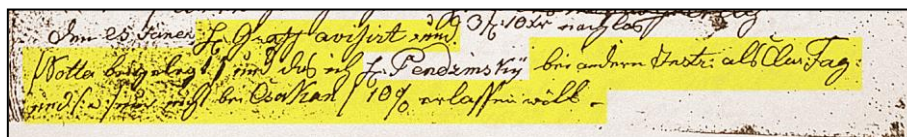 den 25 Jäner H: Graff avisirt und 3 f: 10 xr nachlaß
Notta beygelegt und das ich H: Pendzinsky bei andern Instr: als Clar: Fag:
und nur nicht bei Csakan 10% erlassen will.